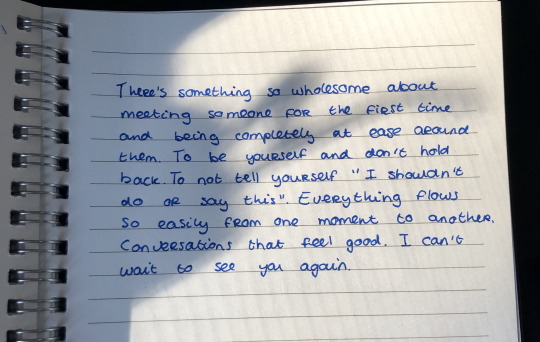 There's something so wholesome about
meeting someone for the first time
and being completely at ease around
them. To be yourself and don't hold
back. To not tell yourself "I shouldn't
do or say this". Everything flows
so easily from one moment to another.
Conversations that feel good. I can't
wait to see you again.